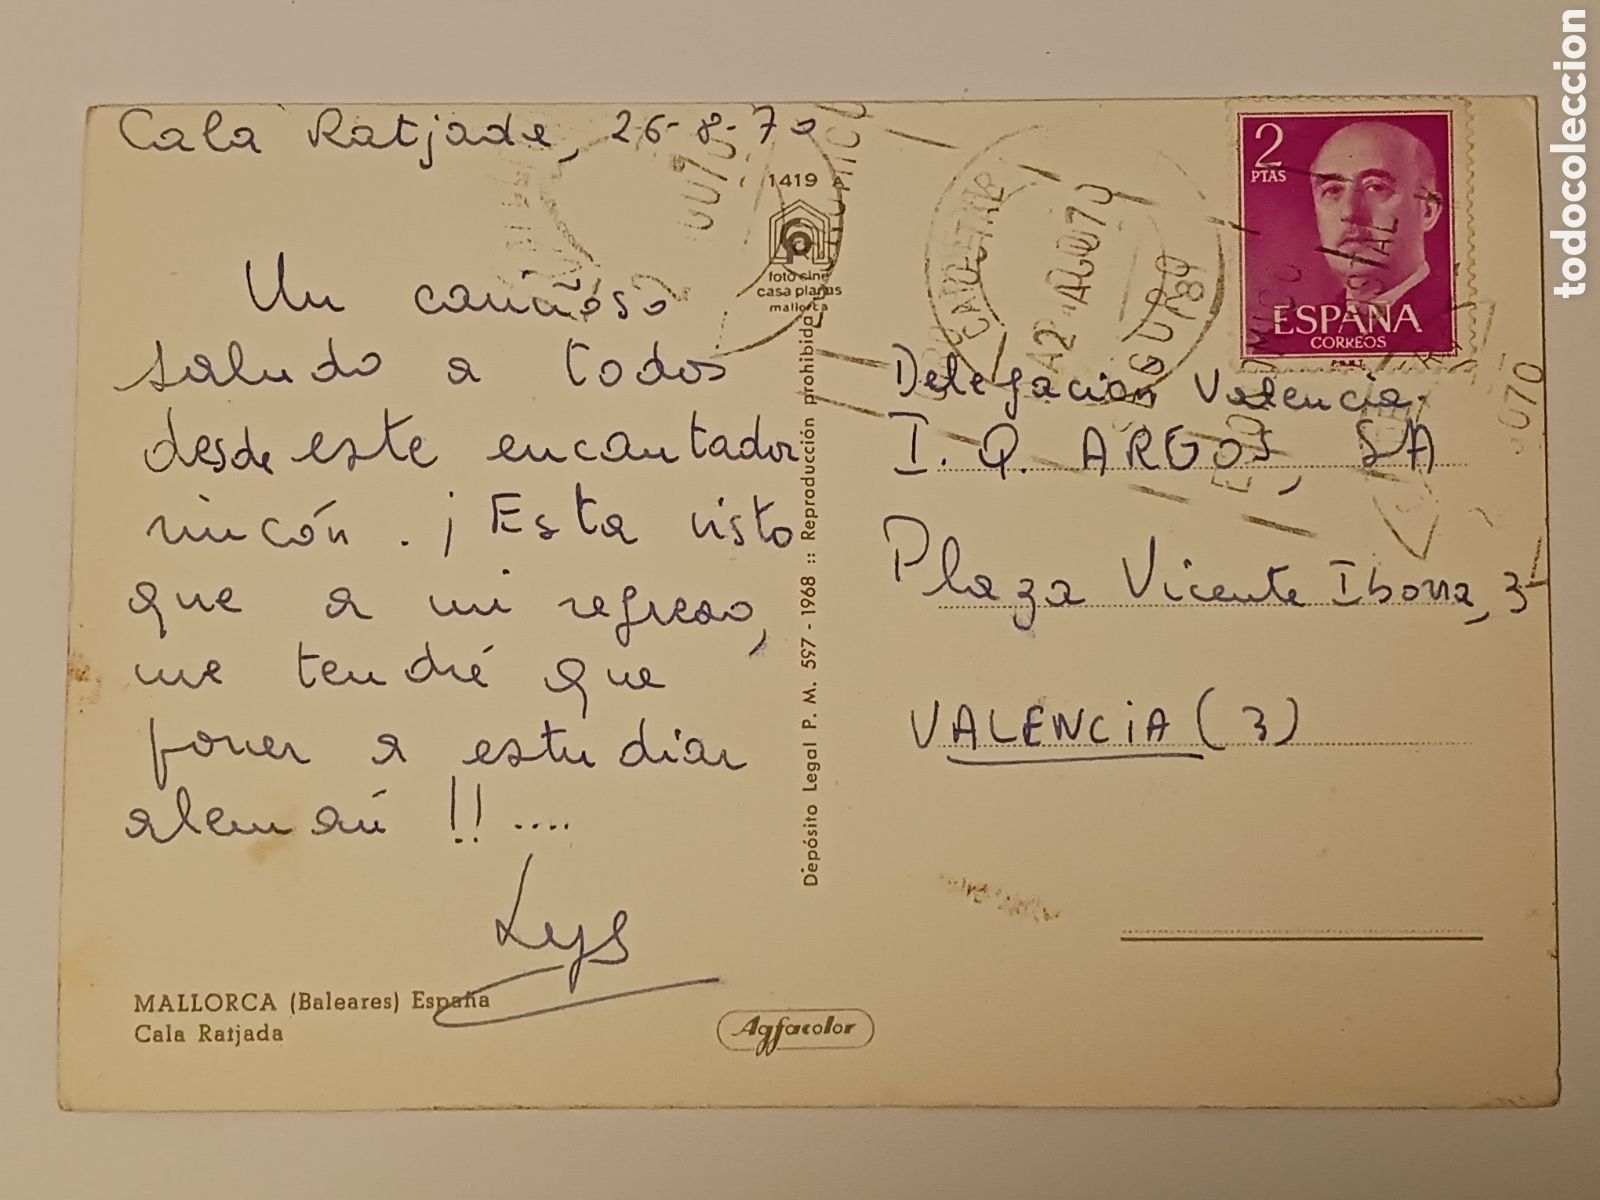 Cala Ratjada, 26-8-70
Un cariñoso
saludo a todos
desde este encantador
rincón. ¡Esta visto
que a mi regreso,
me tendré que
poner a estudiar
alemán!!....
Lys
MALLORCA (Baleares) España
Cala Ratjada
1419 A
foto cine
casa planas
mallorca
Depósito Legal P. M. 597 - 1968 :: Reproducción prohibida
Agfacolor
2
PTAS
ESPAÑA
CORREOS
F.N.M.T.
Delegación Valencia.
I. Q. ARGOS, SA
Plaza Vicente Iborra, 3
VALENCIA (3)
todocoleccion